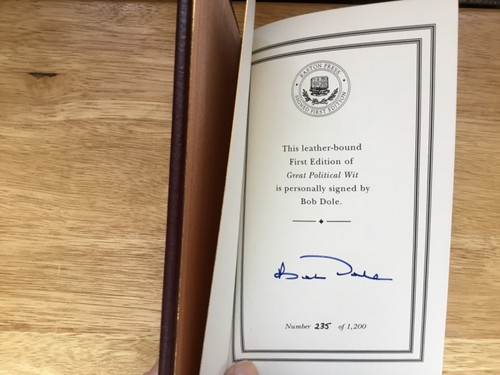 EASTON PRESS
SIGNED FIRST EDITION
This leather-bound
First Edition of
Great Political Wit
is personally signed by
Bob Dole.
Bob Dole
Number 235 of 1,200